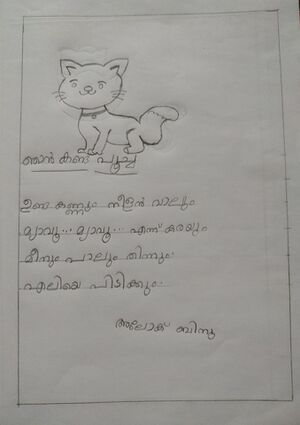 ഞാൻ കണ്ട പൂച്ച
ഉണ്ട കണ്ണും നീളൻ വാലും
മ്യാവൂ... മ്യാവൂ... എന്ന് കരയും
മീനും പാലും തിന്നും.
എലിയെ പിടിക്കും.
അലോക് ബിനു